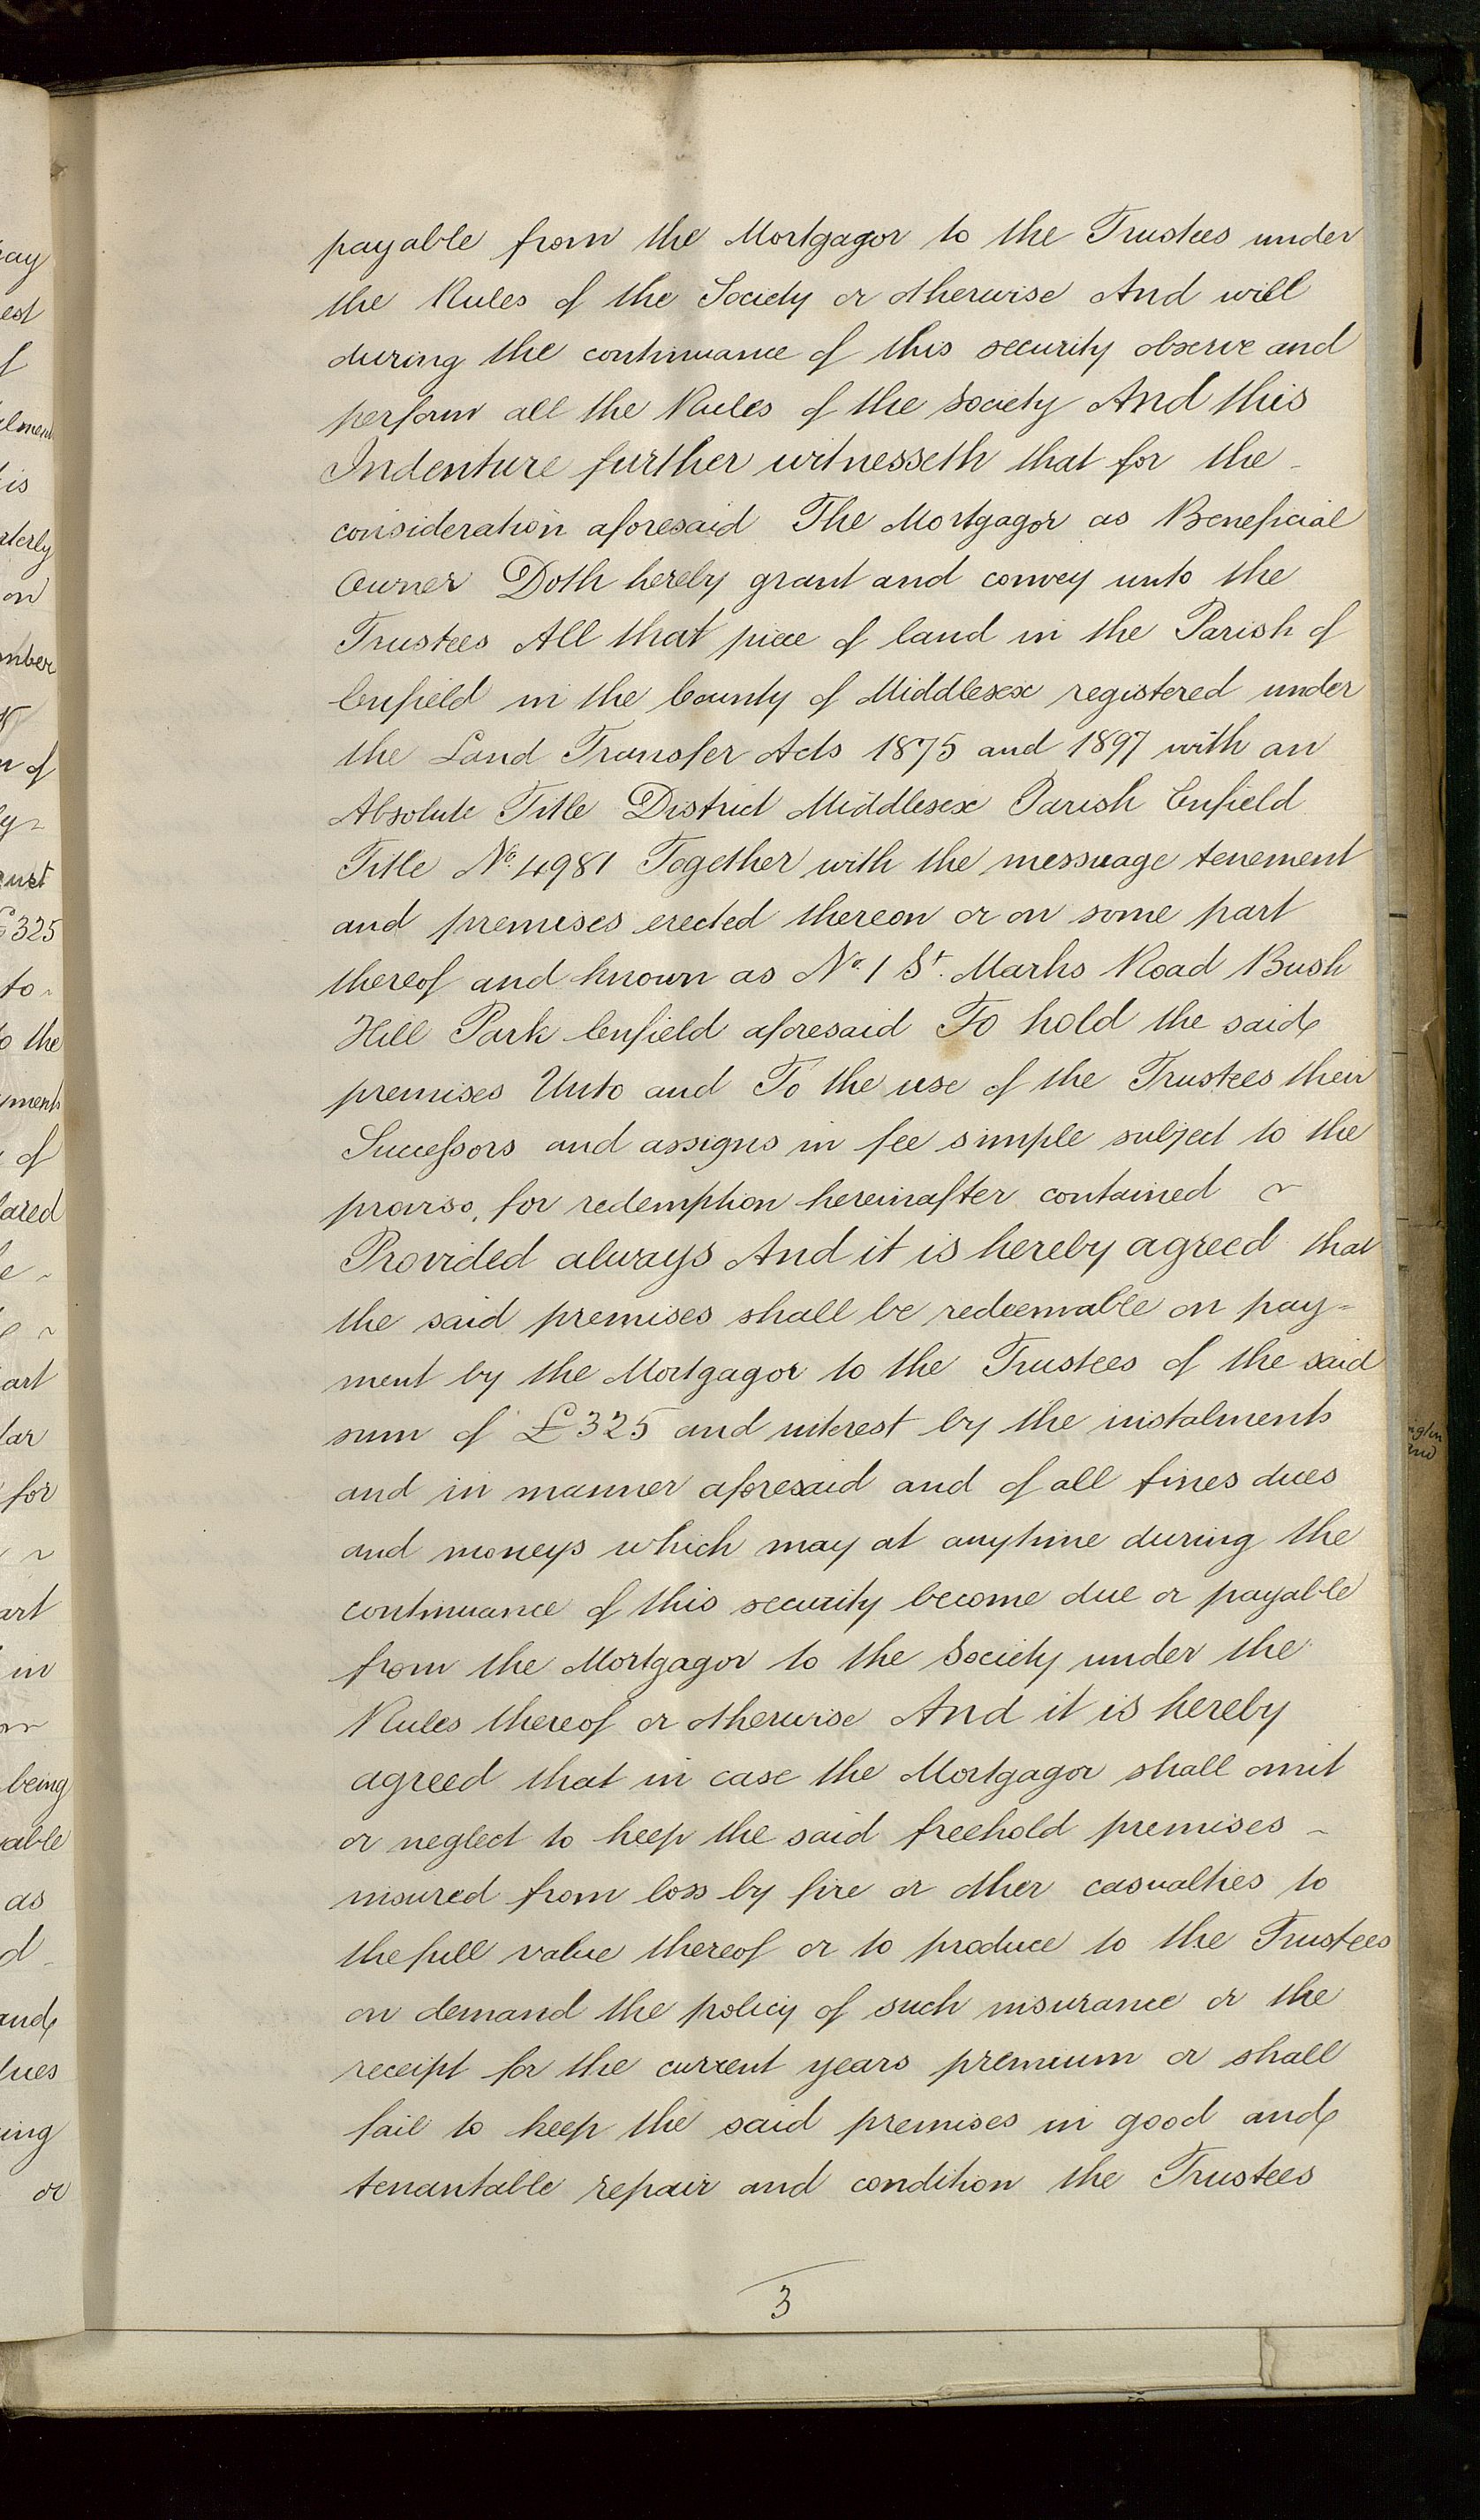 payable from the Mortgagor to the Trustees under
the Rules of the Society or otherwise And will
during the continuance of this security observe and
perform all the Rules of the Society And this
Indenture further witnesseth that for the -
consideration aforesaid The Mortgagor as Beneficial
Owner Doth hereby grant and convey unto the
Trustees All that piece of land in the Parish of
Enfield in the County of Middlesex registered under
the Land Transfer Acts 1875 and 1897 with an
Absolute Title District Middlesex Parish Enfield
Title No. 4981 Together with the messuage tenement
and premises erected thereon or on some part
thereof and known as No. 1 St. Marks Road Bush
Hill Park Enfield aforesaid To hold the said
premises Unto and To the use of the Trustees their
Successors and assigns in fee simple subject to the
proviso, for redemption hereinafter contained ~
Provided always And it is hereby agreed that
the said premises shall be redeemable on pay=
ment by the Mortgagor to the Trustees of the said
sum of £325 and interest by the instalments
and in manner aforesaid and of all fines dues
and moneys which may at anytime during the
continuance of this security become due or payable
from the Mortgagor to the Society under the
Rules thereof or otherwise And it is hereby
agreed that in case the Mortgagor shall omit
or neglect to keep the said freehold premises ~
insured from loss by fire or other casualties to
the full value thereof or to produce to the Trustees
on demand the policy of such insurance or the
receipt for the current years premium or shall
fail to keep the said premises in good and
tenantable repair and condition the Trustees
3